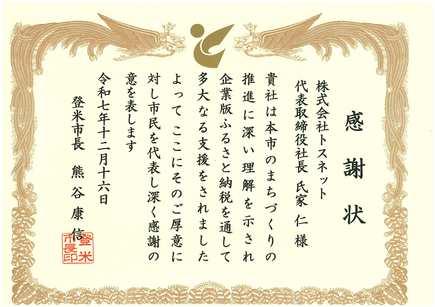 感謝状
株式会社トスネット
代表取締役社長 氏家 仁 様
貴社は本市のまちづくりの
推進に深い理解を示され
企業版ふるさと納税を通して
多大なる支援をされました
よって ここにそのご厚意に
対し市民を代表し深く感謝の
意を表します
令和七年十二月十六日
登米市長 熊谷 康信
登米
市長印